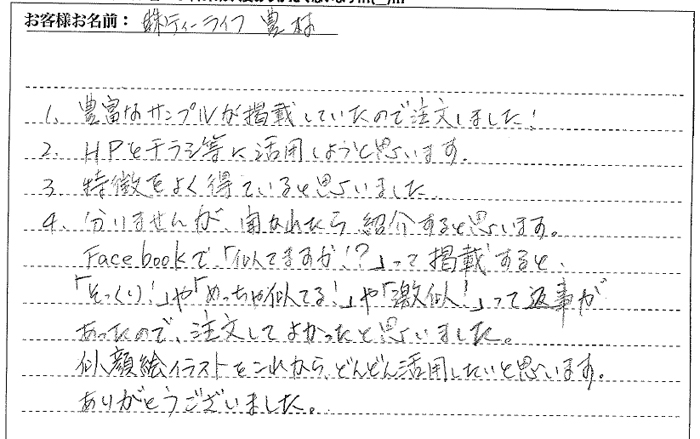 お客様お名前： ㈱ティーライフ 豊村
1、豊富なサンプルが掲載していたので注文しました！
2、HPとチラシ等に活用しようと思います。
3、特徴をよく得ていると思いました
4、分りませんが、聞かれたら紹介すると思います。
Facebookで「似てますか！？」って掲載すると、
「そっくり！」や「めっちゃ似てる！」や「激似！」って返事が
あったので、注文してよかったと思いました。
似顔絵イラストをこれから、どんどん活用したいと思います。
ありがとうございました。